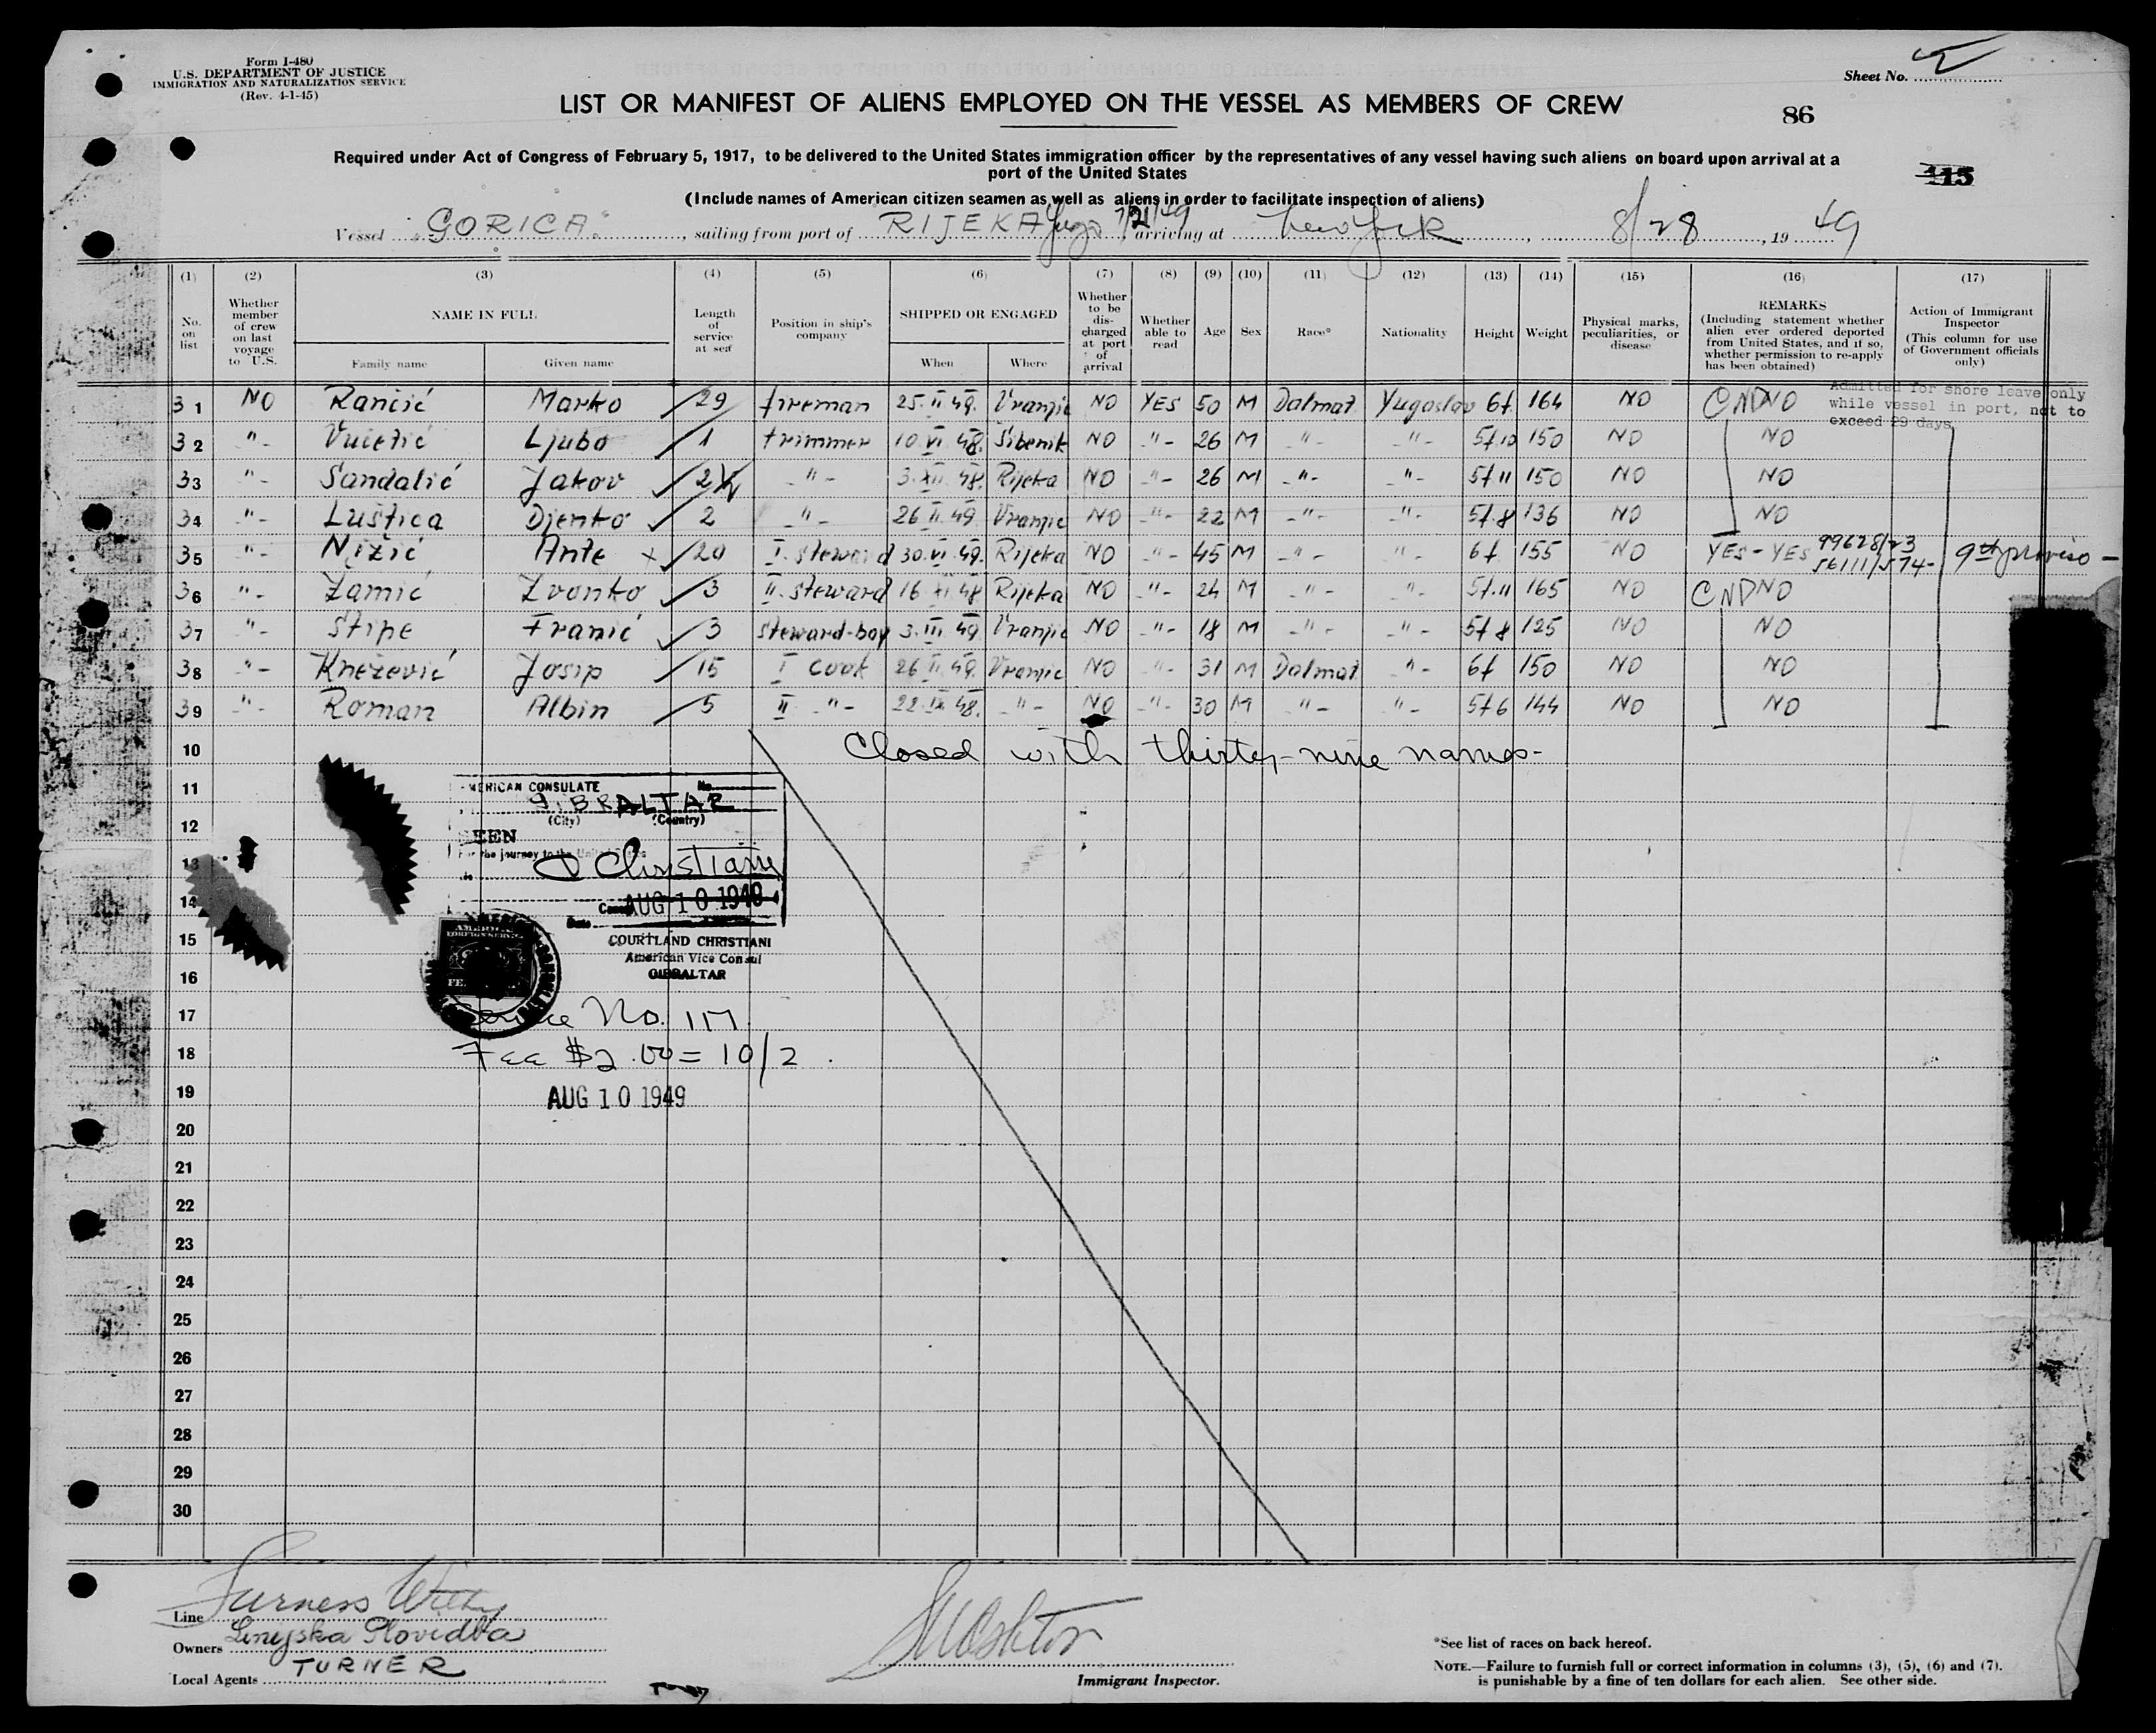 Form I-480
U.S. DEPARTMENT OF JUSTICE
IMMIGRATION AND NATURALIZATION SERVICE
(Rev. 4-1-45)
Sheet No.
LIST OR MANIFEST OF ALIENS EMPLOYED ON THE VESSEL AS MEMBERS OF CREW
86
Required under Act of Congress of February 5, 1917, to be delivered to the United States immigration officer by the representatives of any vessel having such aliens on board upon arrival at a
port of the United States
115
(Include names of American citizen seamen as well as aliens in order to facilitate inspection of aliens)
Vessel "GORICA", sailing from port of RIJEKA Yugo 7/21/49, arriving at New York, 8/28, 1949
(1) (2) (3) (4) (5) (6) (7) (8) (9) (10) (11) (12) (13) (14) (15) (16) (17)
No. on list
Whether member of crew on last voyage to U.S.
NAME IN FULL
Family name Given name
Length of service at sea
Position in ship's company
SHIPPED OR ENGAGED
When Where
Whether to be discharged at port of arrival
Whether able to read
Age
Sex
Race*
Nationality
Height
Weight
Physical marks, peculiarities, or disease
REMARKS
(Including statement whether alien ever ordered deported from United States, and if so, whether permission to re-apply has been obtained)
Action of Immigrant Inspector
(This column for use of Government officials only)
Admitted for shore leave only
while vessel in port, not to
exceed 29 days
31 NO Rančić Marko 29 fireman 25.II.49. Vranjic NO YES 50 M Dalmat Yugoslav 6f 164 NO CND NO
32 "- Vučetić Ljubo 1 trimmer 10.VI.48. Šibenik NO -"- 26 M -"- -"- 5f10 150 NO NO
33 "- Sandalić Jakov 2½ -"- 3.XII.48. Rijeka NO -"- 26 M -"- -"- 5f11 150 NO NO
34 "- Luštica Djenko 2 -"- 26.II.49 Vranjic NO -"- 22 M -"- -"- 5f.8 136 NO NO
35 "- Nižić Ante x 20 I. steward 30.VI.49. Rijeka NO -"- 45 M -"- -"- 6f 155 NO YES - YES 99628/23 56111/574- 9th proviso -
36 "- Zamić Zvonko 3 II. steward 16.XI.48 Rijeka NO -"- 24 M -"- -"- 5f.11 165 NO CND NO
37 "- Stipe Franić 3 steward-boy 3.III.49. Vranjic NO -"- 18 M -"- -"- 5f8 125 NO NO
38 "- Knežević Josip 15 I cook 26.II.49. Vranjic NO -"- 31 M Dalmat -"- 6f 150 NO NO
39 "- Roman Albin 5 II -"- 22.IX.48. -"- NO -"- 30 M -"- -"- 5f6 144 NO NO
10 Closed with thirty-nine names-
11
12
13
14
15
16
17
18
19
20
21
22
23
24
25
26
27
28
29
30
AMERICAN CONSULATE No.
GIBRALTAR
(City) (Country)
SEEN
For the journey to the United States
C Christiani
AUG 10 1949
Date
COURTLAND CHRISTIANI
American Vice Consul
GIBRALTAR
Service No. 117
Fee $2.00 = 10/2.
AUG 10 1949
Line Furness Withy
Owners Linijska Plovidba
Local Agents TURNER
Immigrant Inspector.
*See list of races on back hereof.
NOTE.—Failure to furnish full or correct information in columns (3), (5), (6) and (7).
is punishable by a fine of ten dollars for each alien. See other side.